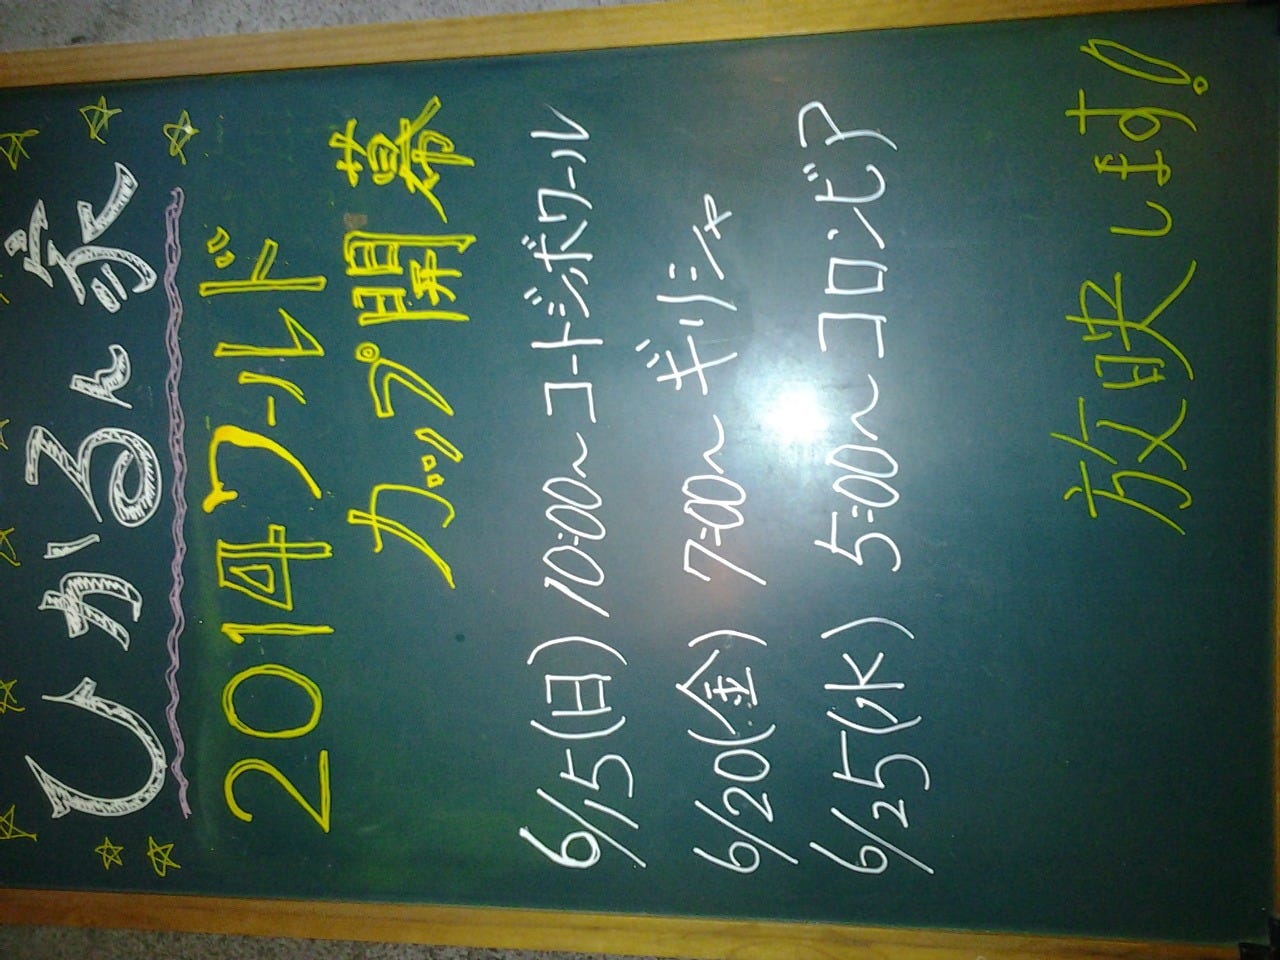 ひかるん家
2014ワールド
カップ開幕
6/15(日) 10:00〜コートジボワール
6/20(金) 7:00〜ギリシャ
6/25(水) 5:00〜コロンビア
放映します!!